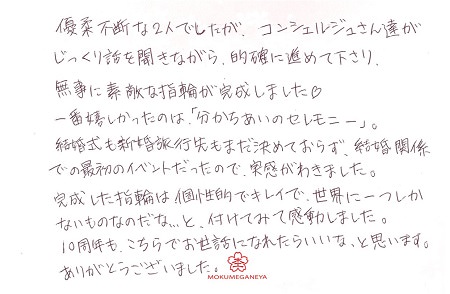 優柔不断な2人でしたが、コンシェルジュさん達が
じっくり話を聞きながら、的確に進めて下さり、
無事に素敵な指輪が完成しました♡
一番嬉しかったのは、「分かちあいのセレモニー」。
結婚式も新婚旅行先もまだ決めておらず、結婚関係
での最初のイベントだったので、実感がわきました。
完成した指輪は個性的でキレイで、世界に一つしか
ないものなのだな…と、付けてみて感動しました。
10周年も、こちらでお世話になれたらいいな、と思います。
ありがとうございました。
MOKUMEGANEYA